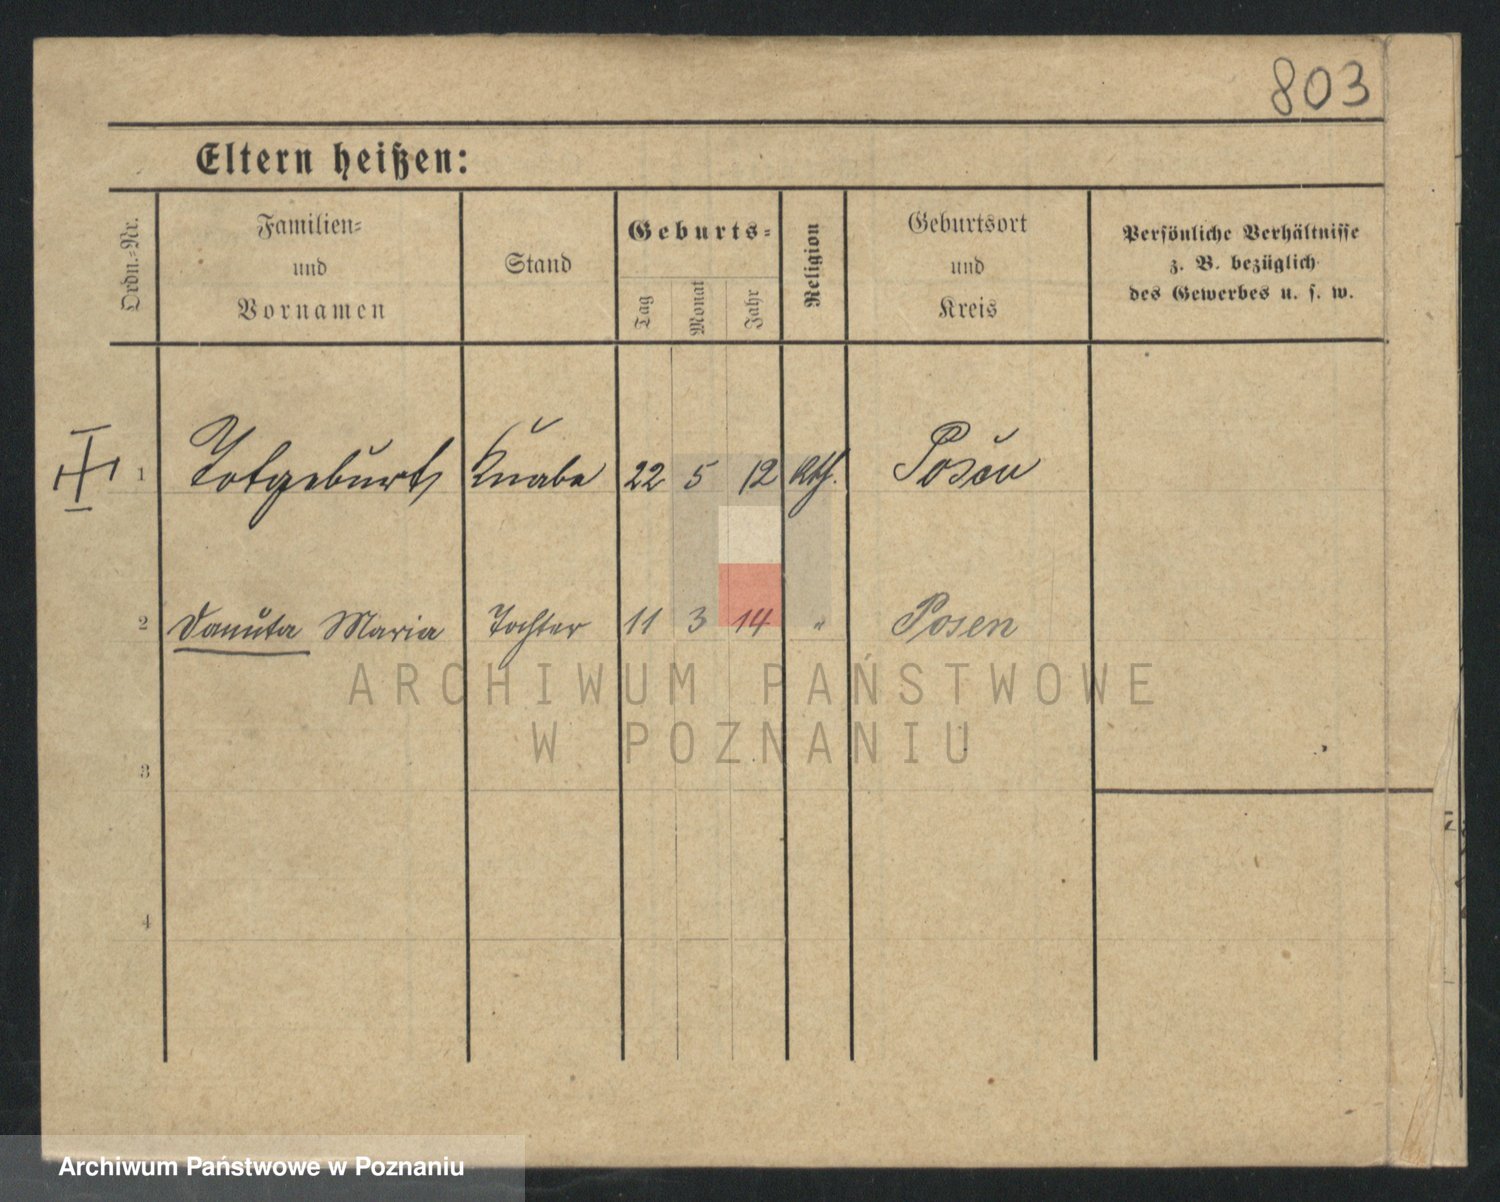 803
Eltern heißen:
Ordn.-Nr.
Familien-
und
Vornamen
Stand
Geburts-
Tag
Monat
Jahr
Religion
Geburtsort
und
Kreis
Persönliche Verhältnisse
z. B. bezüglich
des Gewerbes u. s. w.
1 Totgeburt Knabe 22 5 12 kth. Posen
2 Danuta Maria Tochter 11 3 14 " Posen
ARCHIWUM PAŃSTWOWE
W POZNANIU
3
4
Archiwum Państwowe w Poznaniu